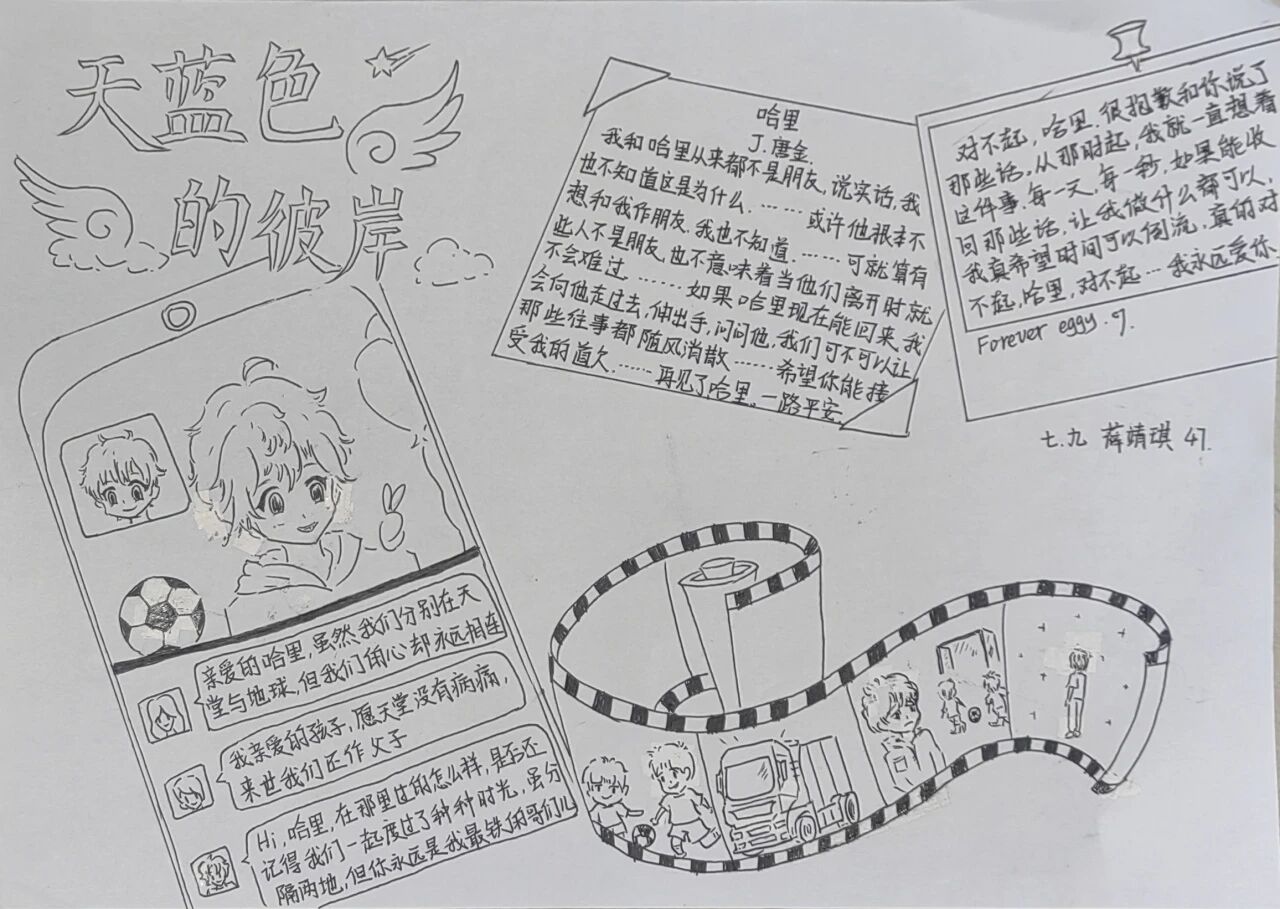 天蓝色
的彼岸
哈里
J.唐金.
我和哈里从来都不是朋友,说实话,我
也不知道这是为什么.……或许他根本不
想和我作朋友.我也不知道.……可就算有
些人不是朋友,也不意味着当他们离开时就
不会难过.………如果哈里现在能回来.我
会向他走过去,伸出手,问问他,我们可不可以让
那些往事都随风消散……希望你能接
受我的道欠……再见了哈里。一路平安.
对不起,哈里.很抱歉和你说了
那些话,从那时起,我就一直想着
这件事.每一天.每一秒,如果能收
回那些话.让我做什么都可以,
我真希望时间可以倒流.真的对
不起,哈里,对不起…我永远爱你.
Forever eggy.9.
七.九 薛靖琪 47.
亲爱的哈里,虽然我们分别在天
堂与地球,但我们的心却永远相连
我亲爱的孩子,愿天堂没有病痛,
来世我们还作父子
Hi,哈里,在那里过的怎么样,是否还
记得我们一起度过了种种时光,虽分
隔两地,但你永远是我最铁的哥们儿